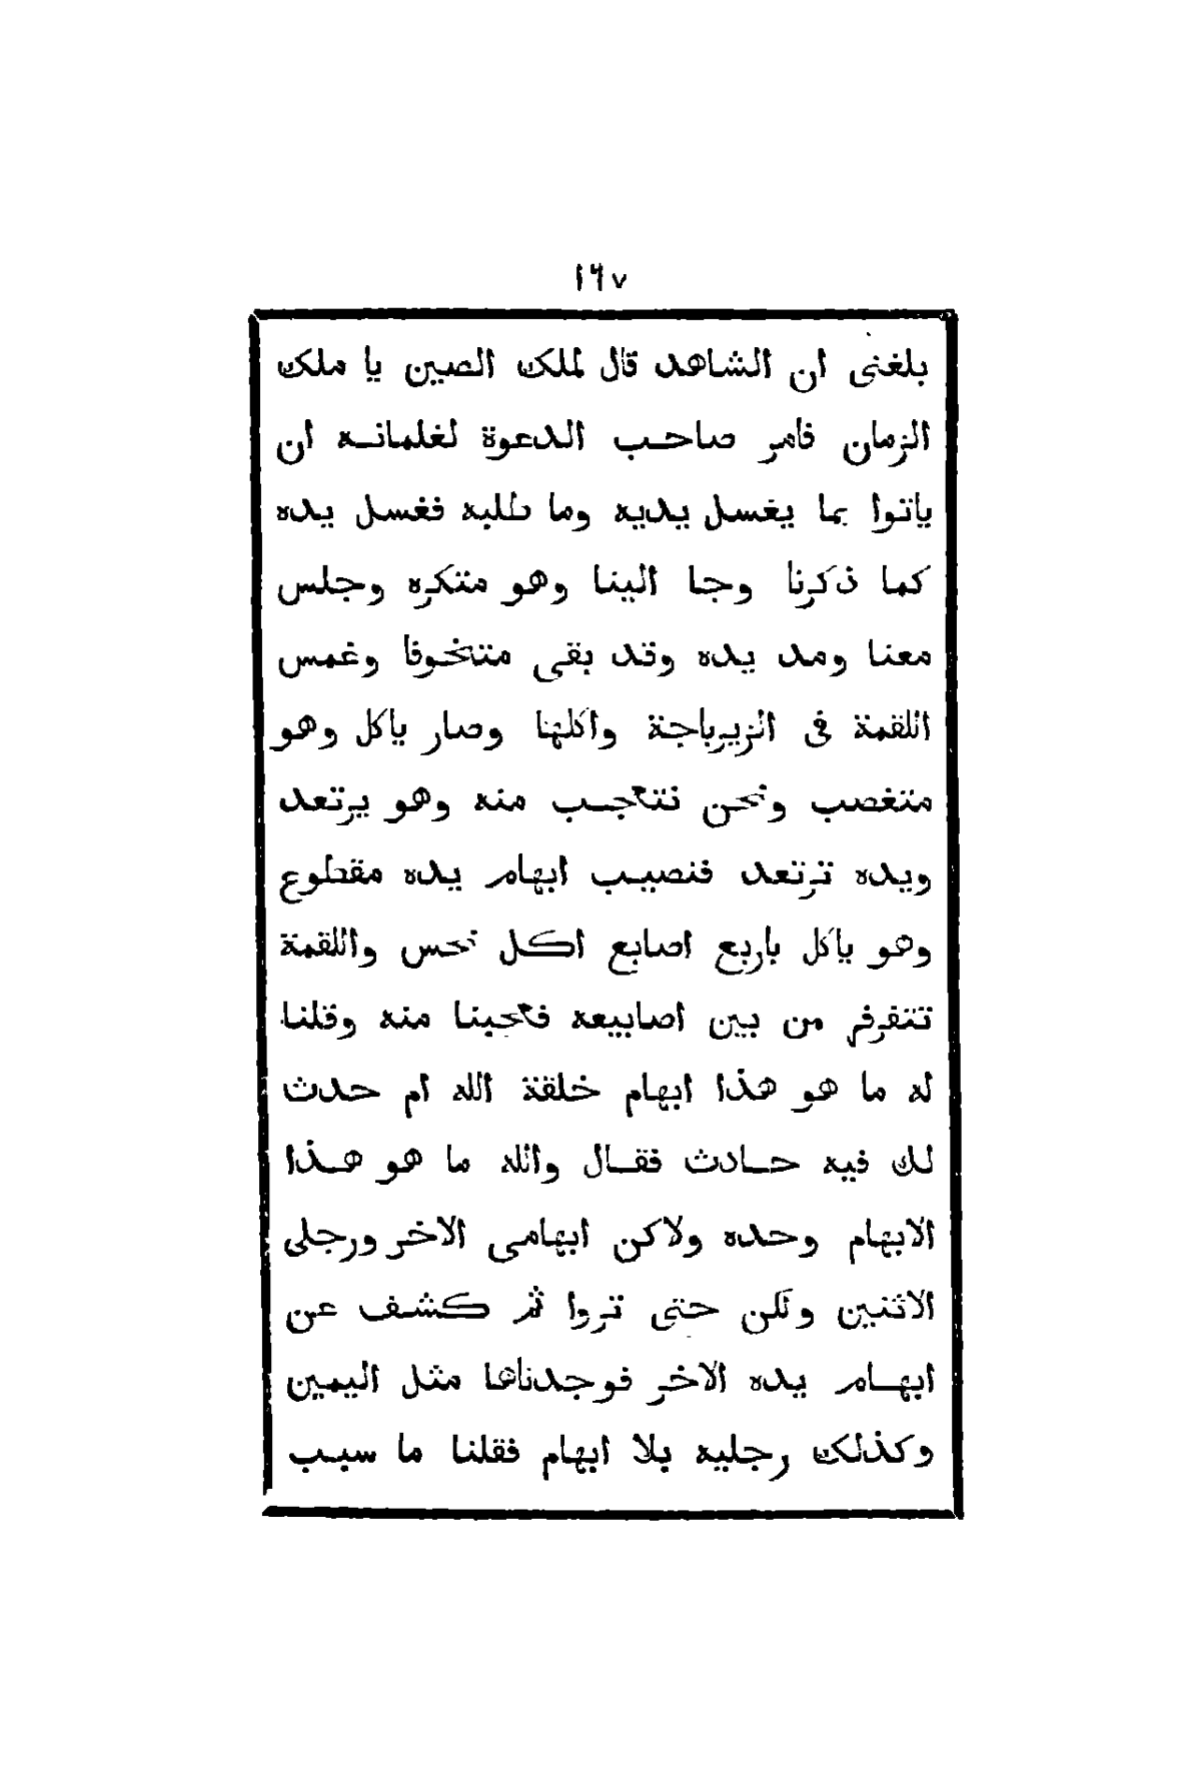 ١٦٧
بلغنى ان الشاهد قال لملك الصين يا ملك
الزمان فامر صاحب الدعوة لغلمانه ان
ياتوا بما يغسل يديه وما طلبه فغسل يده
كما ذكرنا وجا الينا وهو متكره وجلس
معنا ومد يده وقد بقى متخوفا وغمس
اللقمة فى الزيرباجة واكلها وصار ياكل وهو
متغصب ونحن نتعجب منه وهو يرتعد
ويده ترتعد فنصيب ابهام يده مقطوع
وهو ياكل باربع اصابع اكل نحس واللقمة
تتفرفر من بين اصابيعه فتعجبنا منه وقلنا
له ما هو هذا ابهام خلقة الله ام حدث
لك فيه حادث فقال والله ما هو هذا
الابهام وحده ولاكن ابهامى الاخر ورجلى
الاثنين ولكن حتى تروا ثم كشف عن
ابهام يده الاخر فوجدناها مثل اليمين
وكذلك رجليه بلا ابهام فقلنا ما سبب